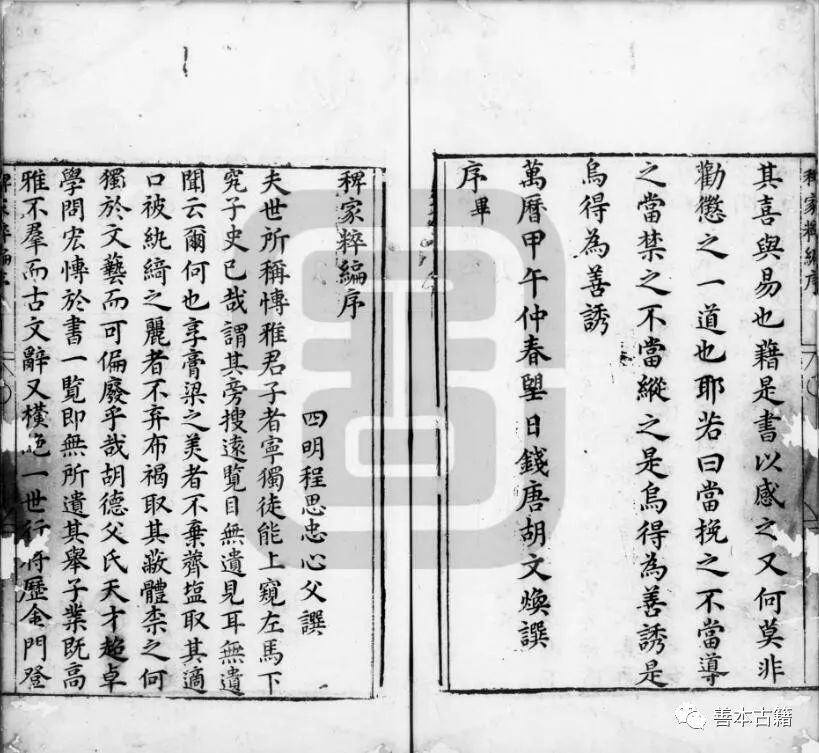 稗家粹編序
其喜與易也藉是書以感之又何莫非
勸懲之一道也耶若曰當挽之不當導
之當禁之不當縱之是烏得為善誘是
烏得為善誘
萬曆甲午仲春朢日錢唐胡文煥譔
序畢
稗家粹編序
四明程思忠心父譔
夫世所稱愽雅君子者寧獨徒能上窺左馬下
究子史已哉謂其旁搜遠覽目無遺見耳無遺
聞云爾何也享膏梁之美者不棄虀塩取其適
口被紈綺之麗者不弃布褐取其蔽體柰之何
獨於文藝而可偏廢乎哉胡德父氏天才超卓
學問宏愽於書一覽即無所遺其舉子業既高
雅不羣而古文辭又橫絶一世行將歷金門登
稗家粹編序
善本古籍